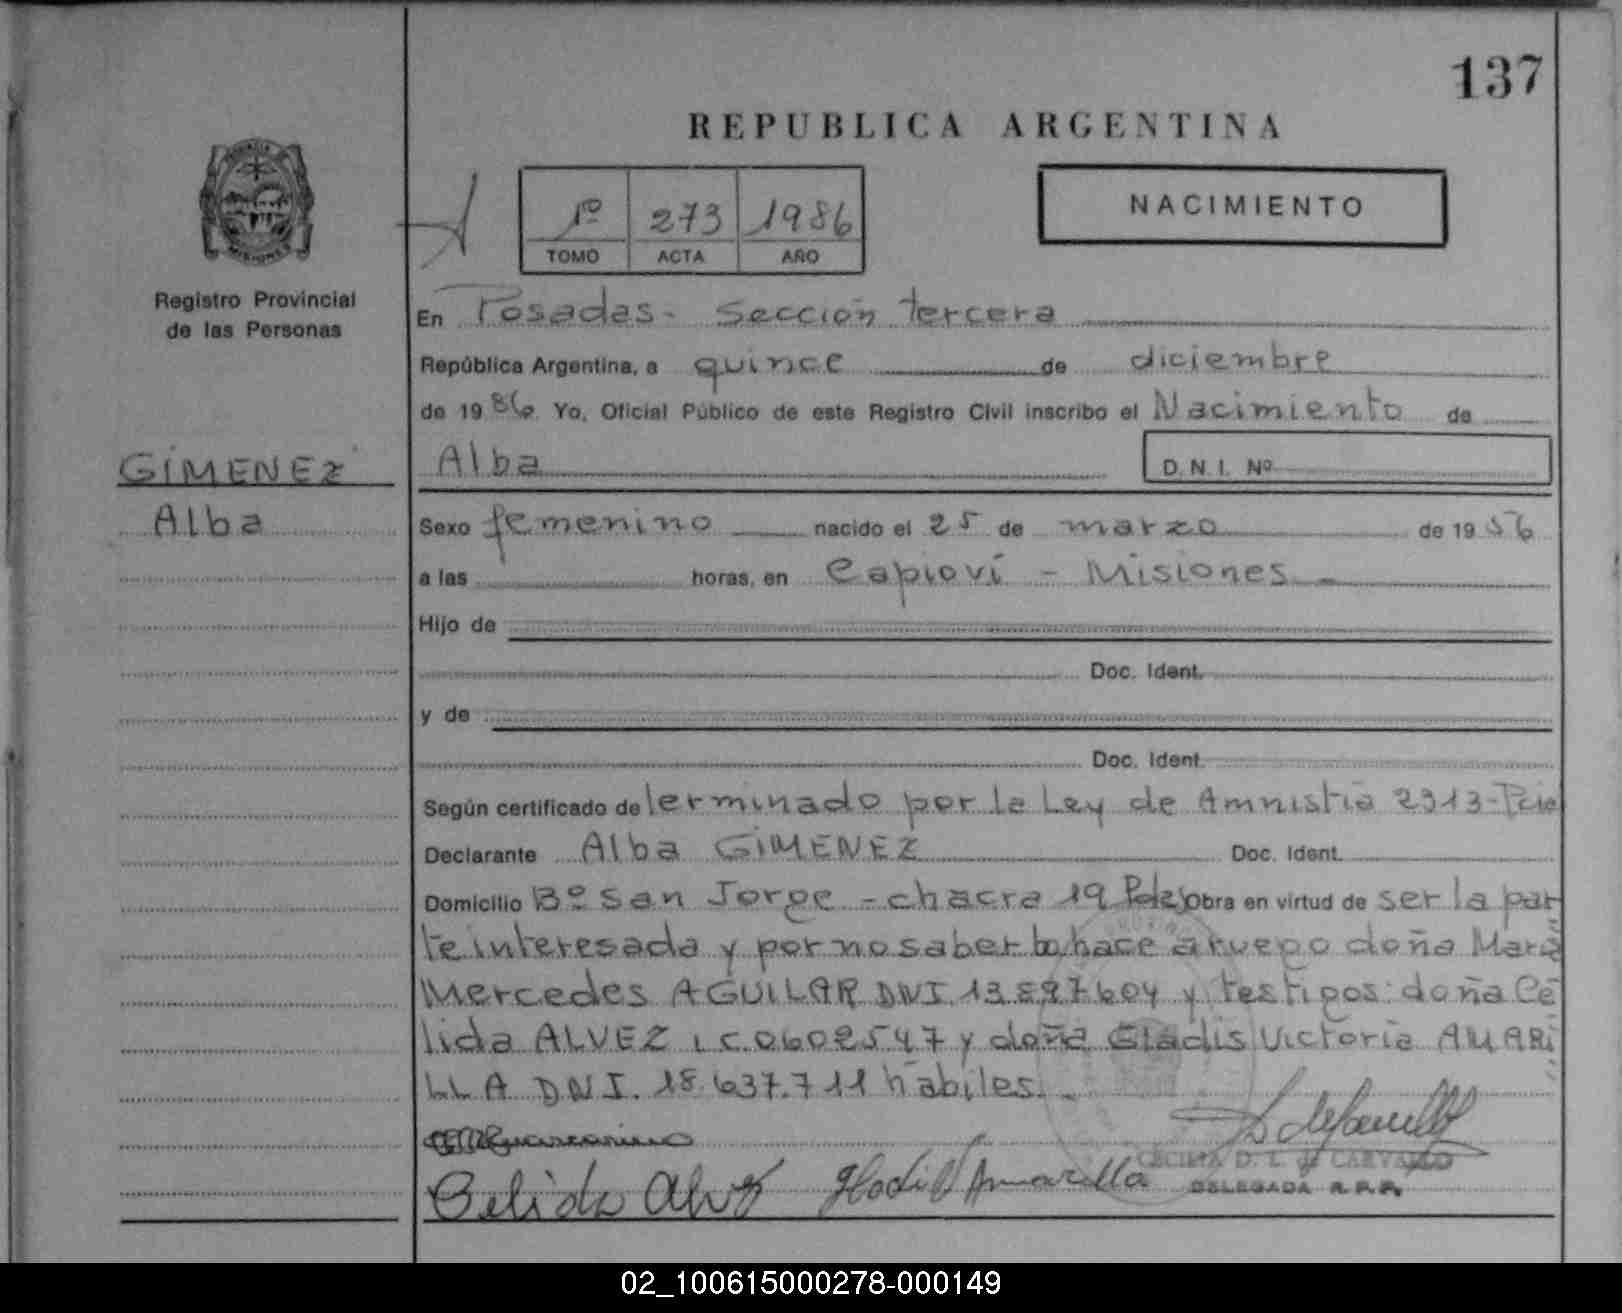 137
REPUBLICA ARGENTINA
1º 273 1986
TOMO ACTA AÑO
NACIMIENTO
Registro Provincial
de las Personas
GIMENEZ
Alba
En Posadas - Sección tercera
República Argentina, a quince de diciembre
de 1986 Yo, Oficial Público de este Registro Civil inscribo el Nacimiento de
Alba D.N.I. Nº
Sexo femenino nacido el 25 de marzo de 1956
a las horas, en Capioví - Misiones
Hijo de
Doc. Ident.
y de
Doc. Ident.
Según certificado de terminado por la Ley de Amnistía 2313-Pcia
Declarante Alba GIMENEZ Doc. Ident.
Domicilio Bº San Jorge - chacra 19 Pdas obra en virtud de ser la par
te interesada y por no saber lo hace a ruego doña María
Mercedes AGUILAR DNI 13.897604 y testigos: doña Cé
lida ALVEZ LC.0602547 y doña Gladis Victoria AMARI
LLA DNI. 18.637.711 hábiles.
Celida Alvez Gladis V Amarilla
CECILIA D. L. de CARVALLO
DELEGADA R.P.P.
02_100615000278-000149